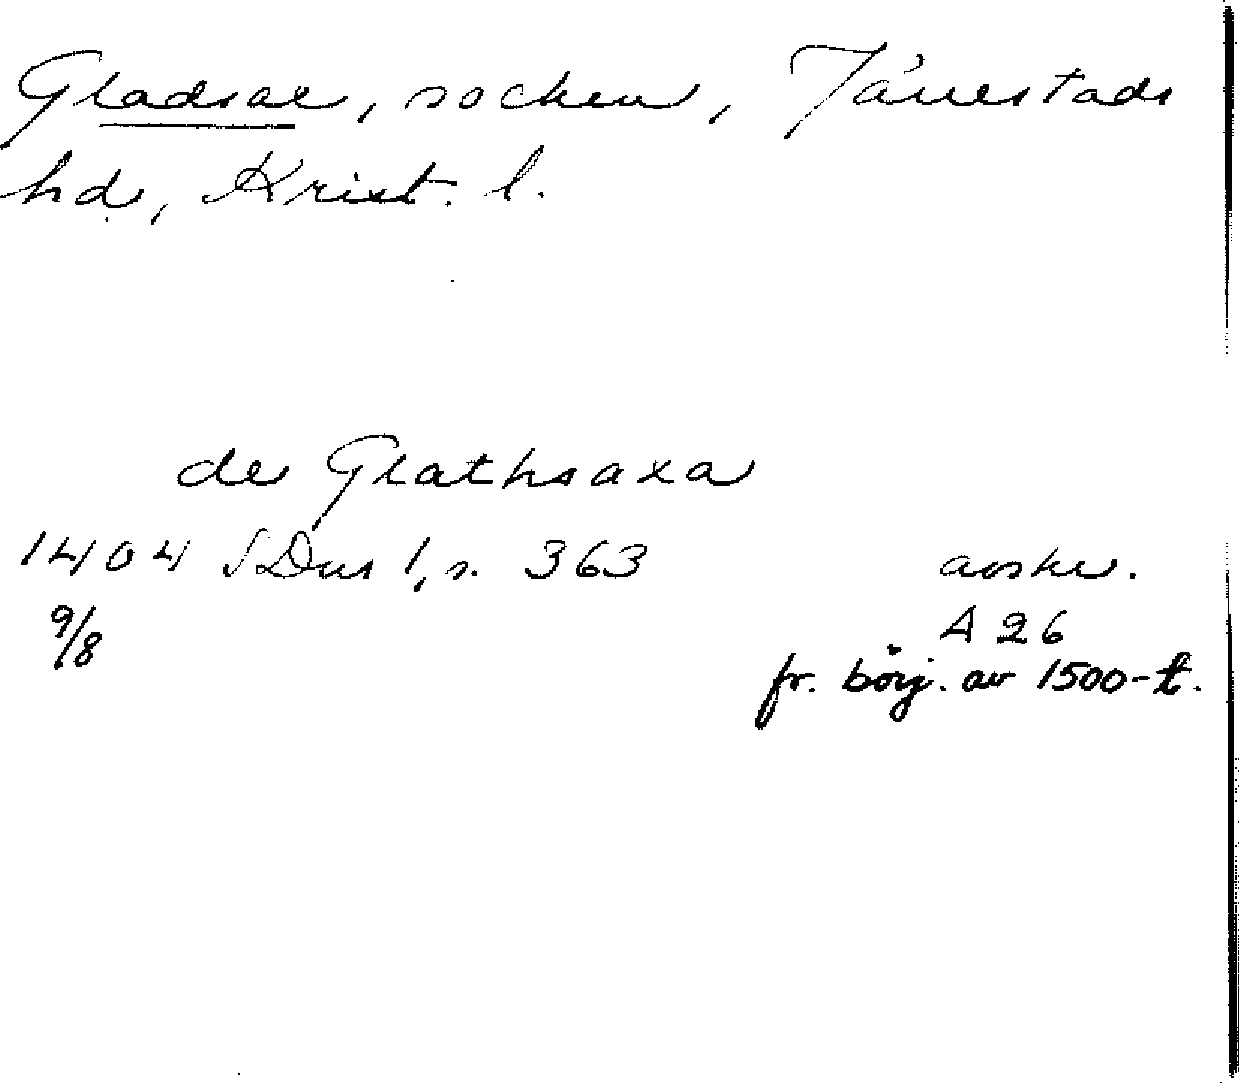 Gladsax, socken, Järrestads
hd, Krist. l.
de Glathsaxa
1404 SDns 1, s. 363 avskr.
9/8 A 26
fr. börj. av 1500-t.